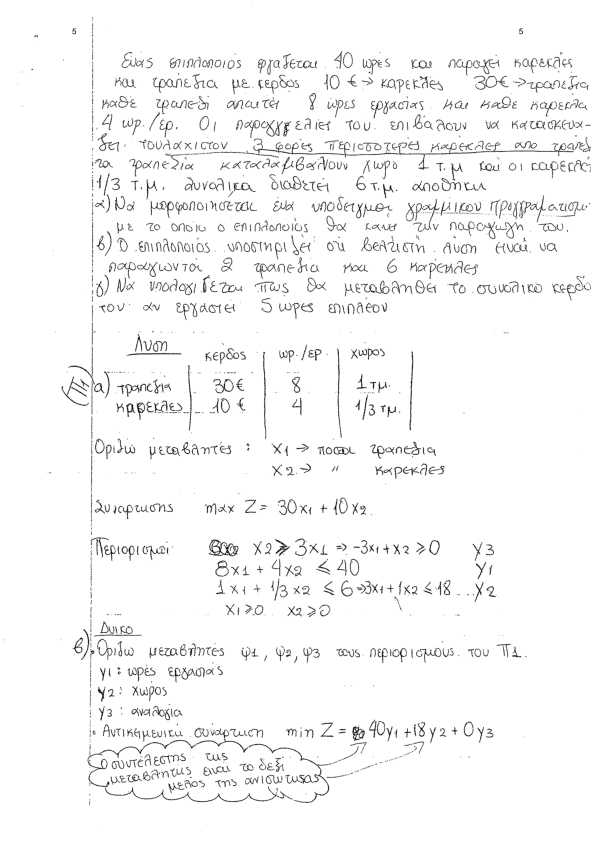 5 5
Ενας επιπλοποιός εργαζεται 40 ωρες και παραγει καρεκλες
και τραπεζια με κερδος 10 € → καρεκλες 30€ → τραπεζια
καθε τραπεζι απαιτει 8 ωρες εργασιας και καθε καρεκλα
4 ωρ./ερ. Οι παραγγελιες του επιβαλουν να κατασκευα-
ζει τουλαχιστον 3 φορες περισσοτερες καρεκλες απο τραπεζ
τα τραπεζια καταλαμβανουν χωρο 1 τ.μ και οι καρεκλε
1/3 τ.μ. Συνολικα διαθετει 6 τ.μ. αποθηκη
α) Να μορφοποιησεται ενα υποδειγμα γραμμικου προγραματισμο
με το οποιο ο επιπλοποιός θα κανει την παραγωγη του.
β) Ο επιπλοποιός υποστηριζει οτι βελτιστη λυση ειναι να
παραγωνται 2 τραπεζια και 6 καρεκλες
γ) Να υπολογιζεται πως θα μεταβληθει το συνολικο κερδο
του αν εργαστει 5 ωρες επιπλεον
Λυση
κερδος ωρ./ερ. χωρος
(Π1) α) τραπεζια 30€ 8 1 τμ.
καρεκλες 10 € 4 1/3 τμ.
Οριζω μεταβλητές : x1 → ποσα τραπεζια
x2 → " καρεκλες
Συναρτησης max Z = 30x1 + 10x2.
Περιορισμοι x2 ≥ 3x1 ⇒ -3x1 + x2 ≥ 0 y3
8x1 + 4x2 ≤ 40 y1
1x1 + 1/3x2 ≤ 6 ⇒ 3x1 + 1x2 ≤ 18 ... y2
x1 ≥ 0 x2 ≥ 0
Δυικο
β) • Οριζω μεταβλητες ψ1, ψ2, ψ3 τους περιορισμους του Π1.
y1 : ωρες εργασιας
y2 : χωρος
y3 : αναλογια
• Αντικημενικη συναρτηση min Z = 40y1 + 18y2 + 0y3
Ο συντελεστης της
μεταβλητης ειναι το δεξι
μελος της ανισωτητας